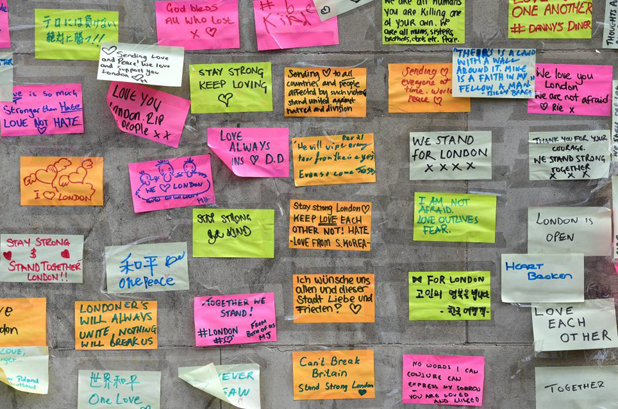 テロには負けない
絶対に勝つ!!
God bless
All who Lost
X ♡ X
we are all Humans
you are Killing one
of your own.
LOVE
ONE ANOTHER
#DANNYS DINER
Sending Love
and Peace! We love
and support you
London
STAY STRONG
KEEP LOVING
♡
Sending ♡ to all
countries and people
affected by surviving
stand united against
hatred and division
Sending ♡
everyone
time
Peace ♡
THERE IS A LAND
WITH A WALL
AROUND IT. MINE
IS A FAITH IN MY
FELLOW MAN
BILLY BRAGG
We love you
London
We are not afraid
is so much
Stronger than Hate
LOVE NOT HATE
LOVE YOU
London. RIP
people X X
LOVE
ALWAYS
♡ D.D
He will wipe every
tear from their eyes
WE STAND
FOR LONDON
X X X X
THANK YOU FOR YOUR
COURAGE.
WE STAND STRONG
TOGETHER
X X X
I ♡ LONDON
WE ♡ LONDON
STAY STRONG
BE KIND
Stay strong London ♡
KEEP LOVE EACH
OTHER NOT! HATE
-LOVE FROM S.KOREA-
I AM NOT
AFRAID.
LOVE OUTLIVES
FEAR.
LONDON IS
OPEN
STAY STRONG
&
STAND TOGETHER
LONDON!!
和平
One Peace
Ich wünsche uns
allen und dieser
Stadt Liebe und
Frieden! ♡
FOR LONDON
고인의 명복을 빕니다
HEART
BROKEN
London
LONDONER'S
WILL ALWAYS
UNITE, NOTHING
WILL BREAK US
TOGETHER WE
STAND!
#LONDON
From
MJ
LOVE EACH
OTHER
Can't Break
Britain
Stand Strong London
NO WORDS I CAN
CONJURE CAN
EXPRESS MY SORROW
YOU ARE LOVED
AND MISSED
世界和平
One Love
TOGETHER